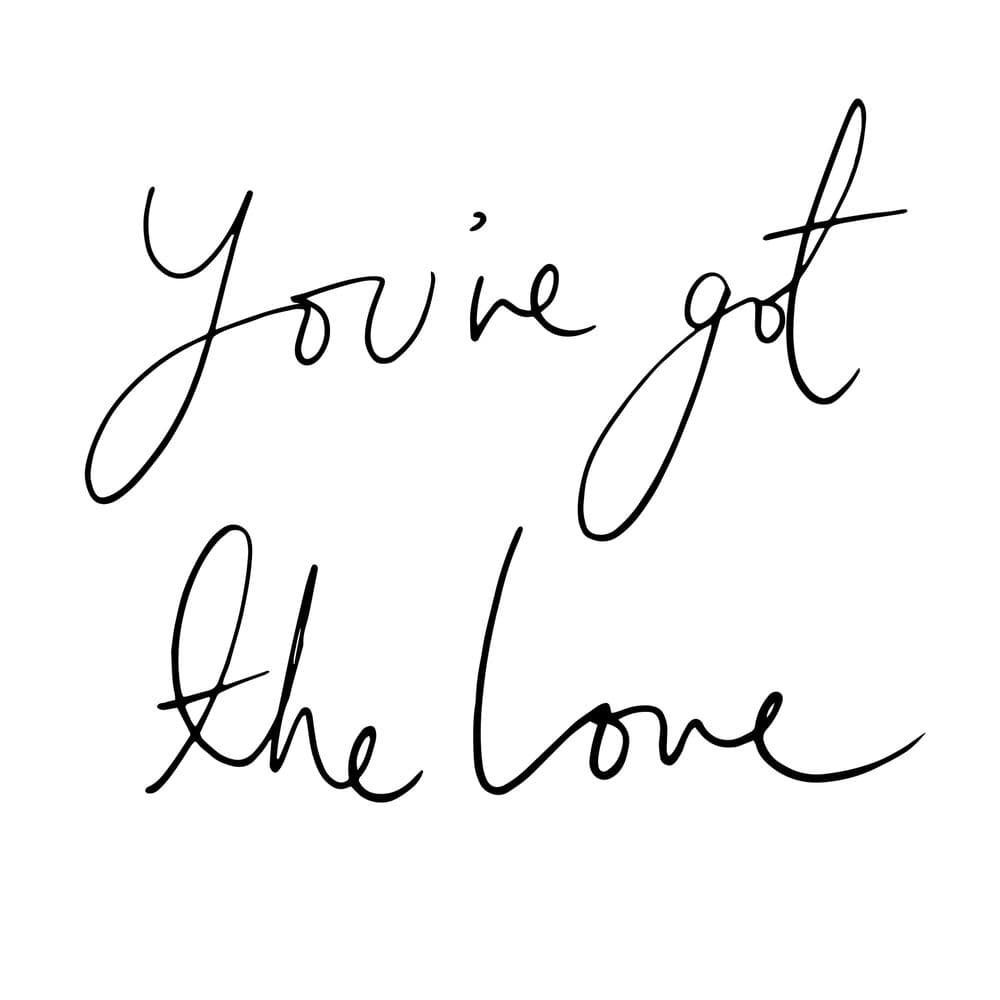 You've got
the love